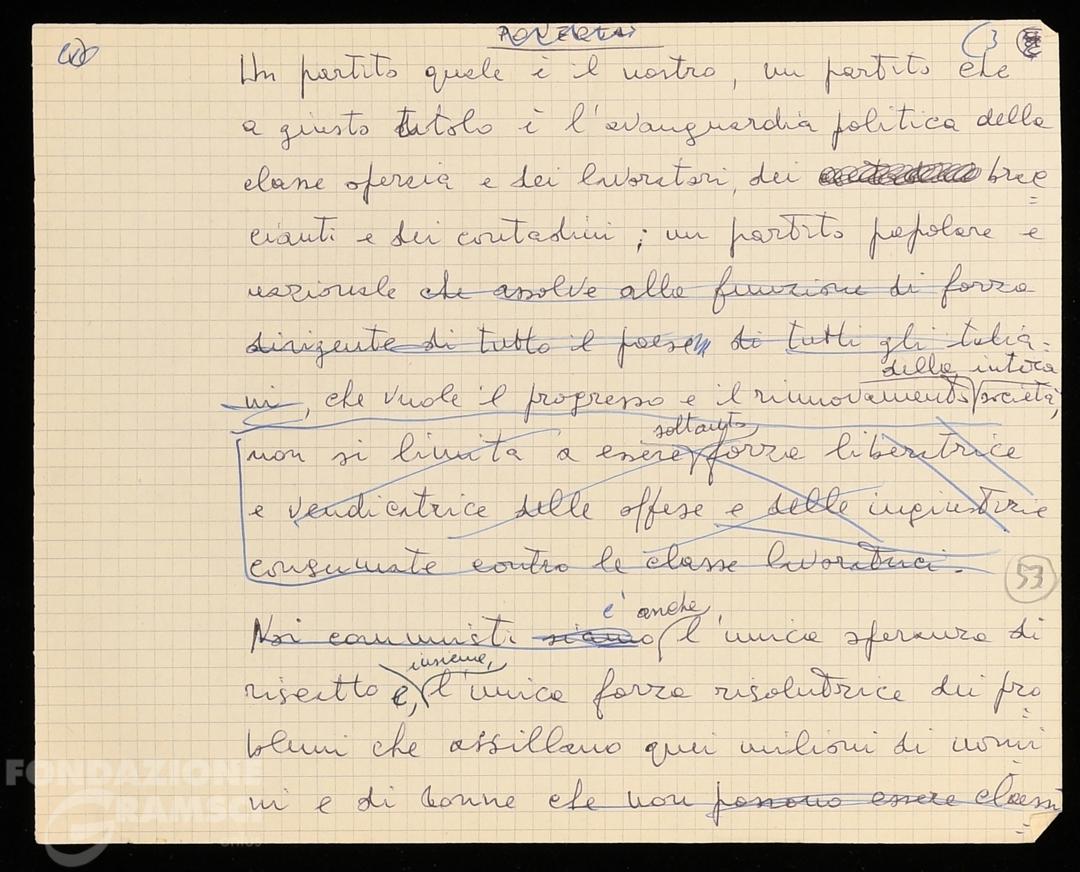 (3
Un partito quale è il nostro, un partito che
a giusto titolo è l'avanguardia politica della
classe operaia e dei lavoratori, dei brac
cianti e dei contadini; un partito popolare e
nazionale che assolve alla funzione di forza
dirigente di tutto il paese di tutti gli italia=
della intera
ni, che vuole il progresso e il rinnovamento società,
soltanto
non si limita a essere forza liberatrice
e vendicatrice delle offese e delle ingiustizie
consumate contro le classe lavoratrici.
53
è anche
Noi comunisti siamo l'unica speranza di
insieme,
riscatto e, l'unica forza risolutrice dei pro
blemi che assillano quei milioni di uomi
ni e di donne che non possono essere classi
FONDAZIONE
GRAMSCI